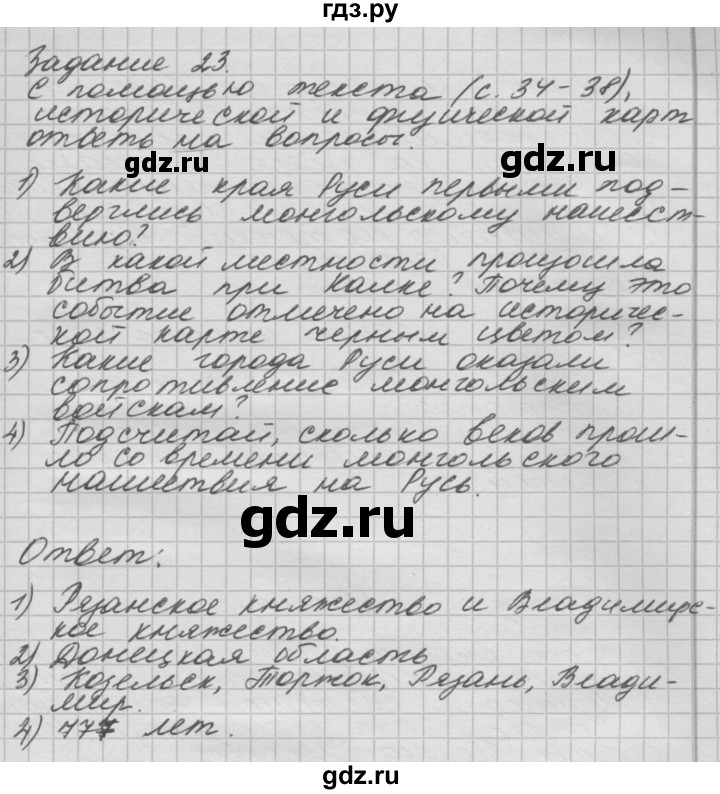 гдз.ру
Задание 23.
С помощью текста (с. 34-38),
исторической и физической карт
ответь на вопросы.
gdz.ru gdz.ru
1) Какие края Руси первыми под-
верглись монгольскому нашест-
вию?
2) В какой местности произошла
битва при Калке? Почему это
событие отмечено на историчес-
кой карте черным цветом?
3) Какие города Руси оказали
сопротивление монгольским
войскам?
4) Подсчитай, сколько веков прош-
ло со времени монгольского
нашествия на Русь.
gdz.ru
Ответ:
1) Рязанское княжество и Владимирс-
кое княжество.
2) Донецкая область
3) Козельск, Торжок, Рязань, Влади-
мир.
4) 777 лет.
gdz.ru